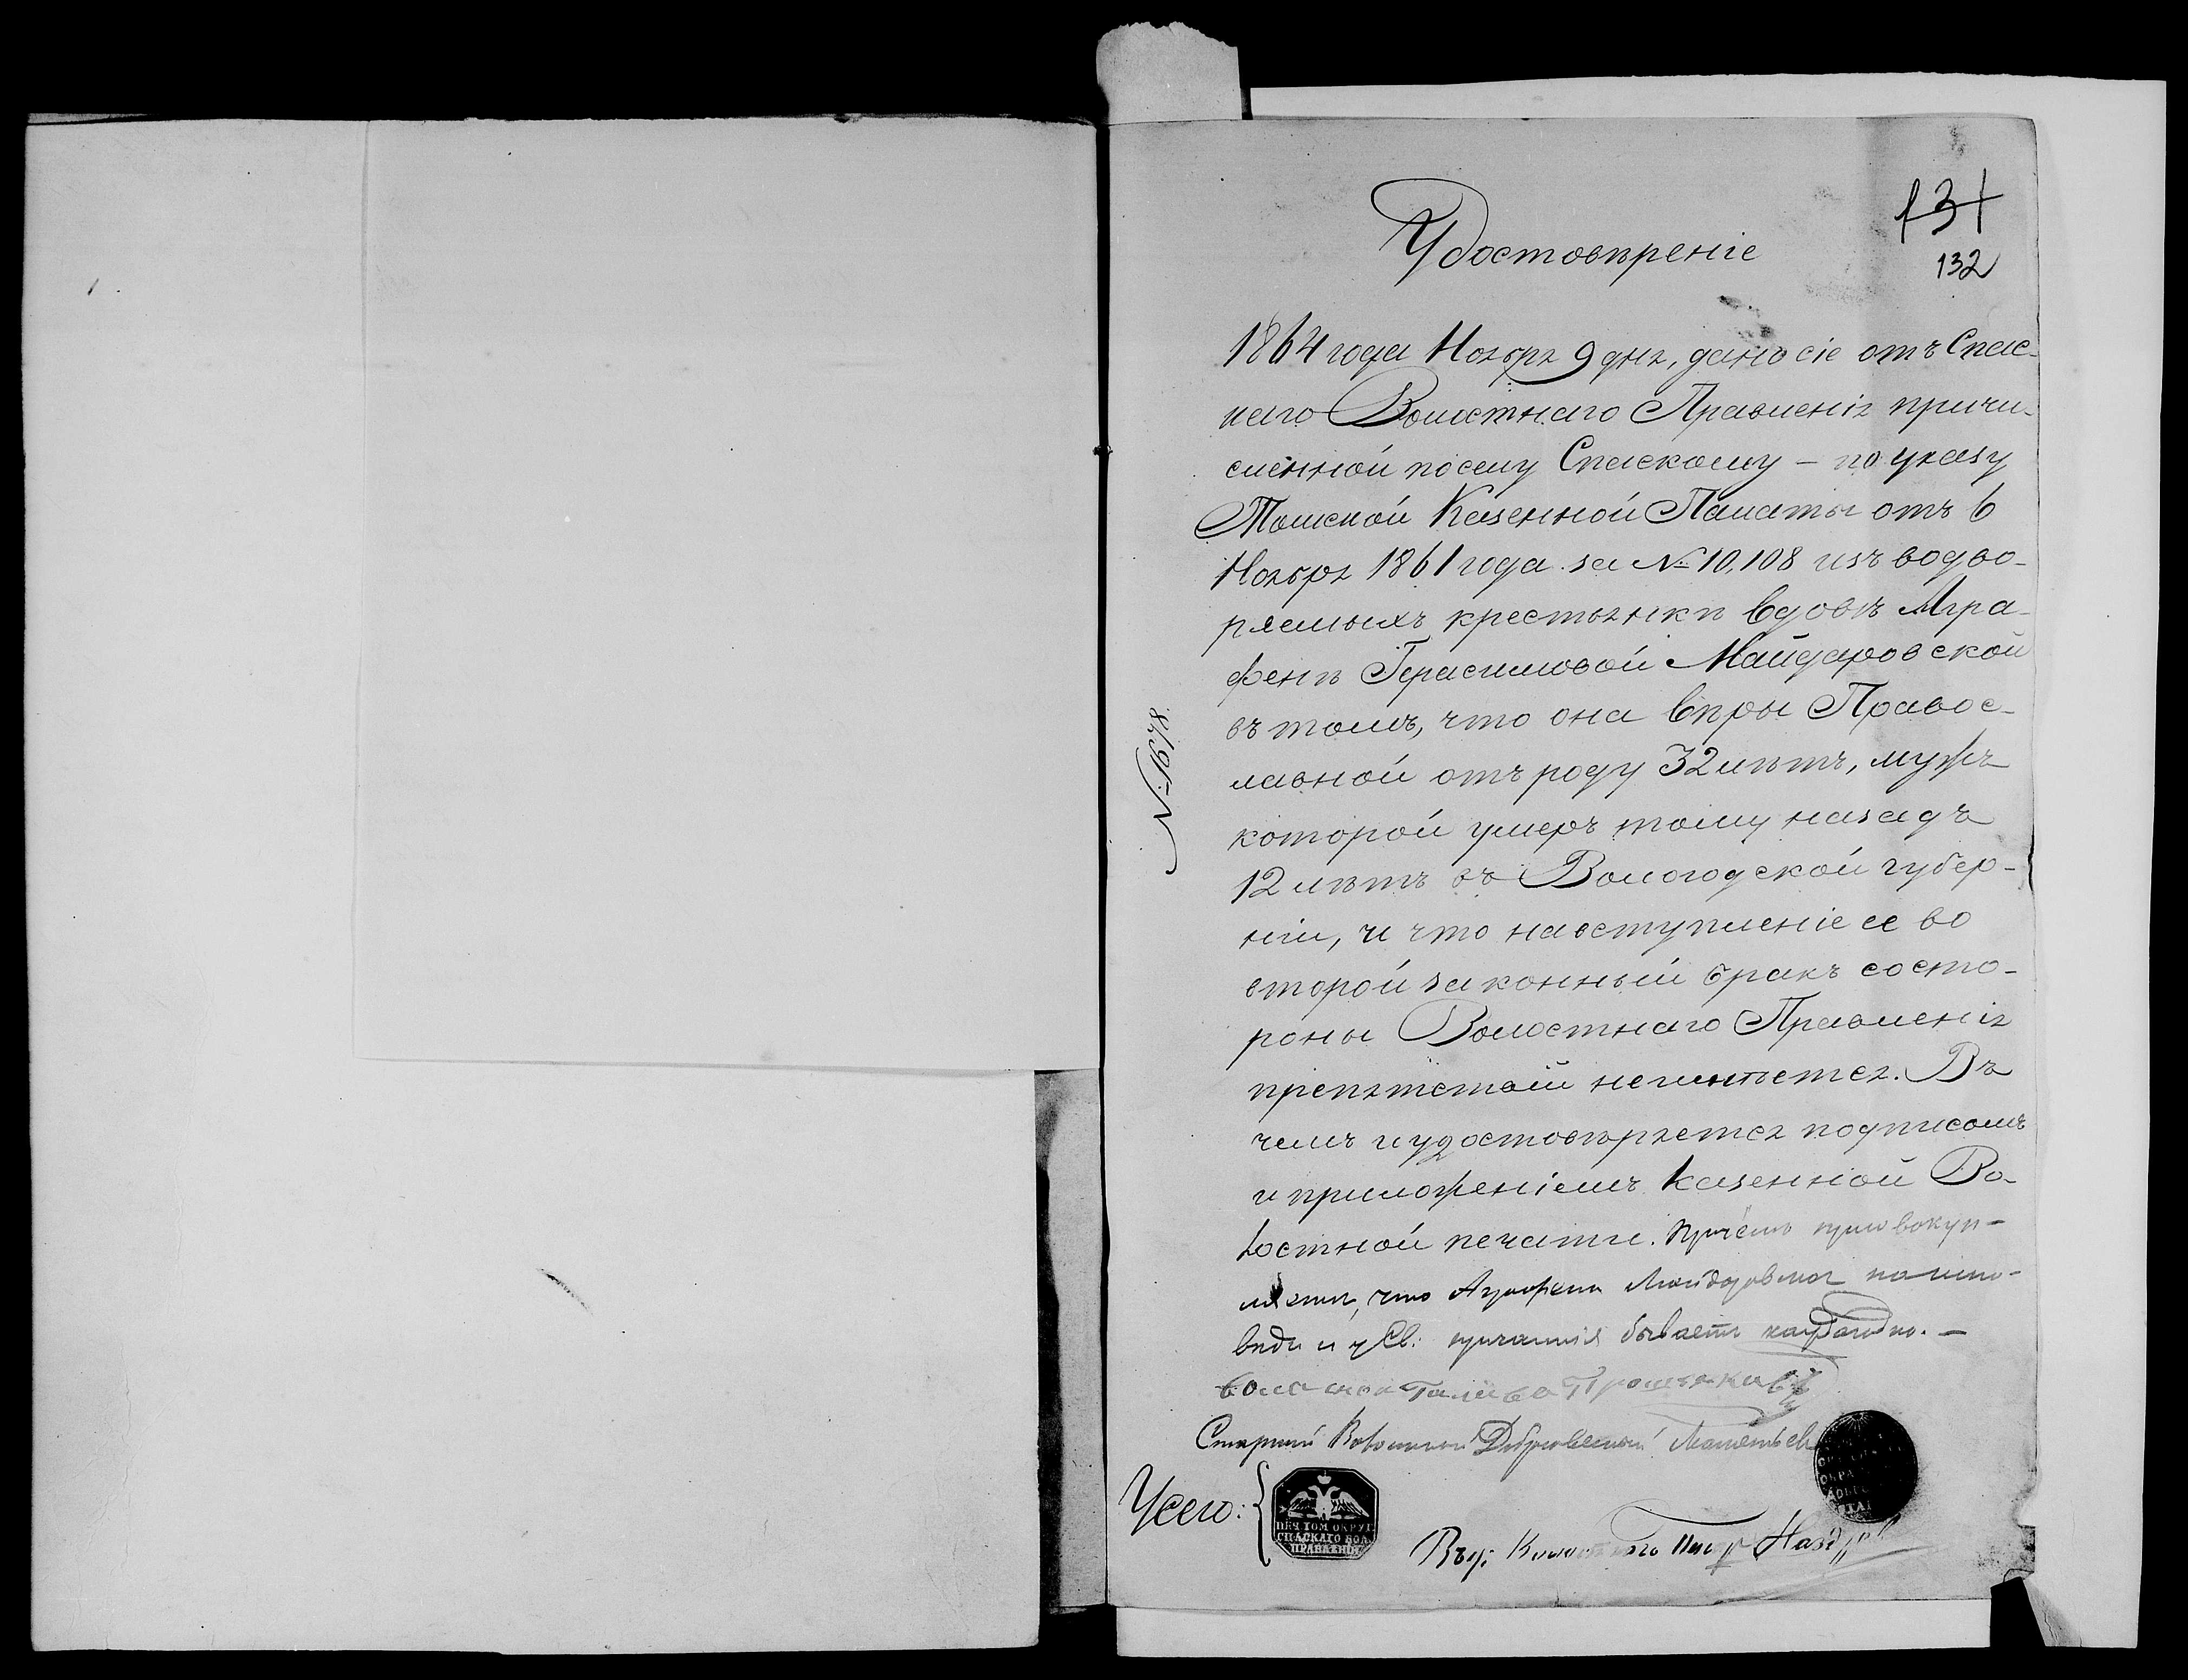 131
Удостовѣреніе
132
1864 года Ноября 9 дня, дано сіе отъ Спас-
каго Волостнаго Правленія причи-
сленной по селу Спаскому – по указу
Томской Казенной Палаты отъ 6
Ноября 1861 года за № 10,108 изъ водво-
ряемыхъ крестьянкѣ вдовѣ Агра-
фенѣ Герасимовой Майдаровской
въ томъ, что она вѣры Правос-
лавной отъ роду 32 лѣтъ, мужъ
которой умеръ тому назадъ
12 лѣтъ въ Вологодской губер-
ніи, и что на вступленіе ее во
второй законный бракъ состо-
роны Волостнаго Правленія
препятствій не имѣется. Въ
чемъ и удостовѣряется подписомъ
и приложеніемъ казенной Во-
лостной печати. Причёмъ присовокуп-
ляетъ, что Аграфена Майдаровская на испо-
веди и у Св: причастія бываетъ каждогодно. –
Волосной Галова
Старшій Волостной Добросовестный
У сего:
ПЕЧ ТОМ ОКРУГ
СПАСКАГО ВОЛ
ПРАВЛЕНІЯ
Волостнаго Пис
№